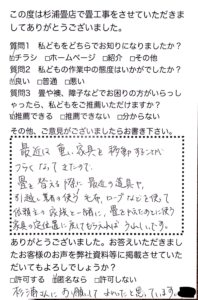 この度は杉浦畳店で畳工事をさせていただきまし
てありがとうございました。
質問1　私どもをどちらでお知りになりましたか？
☑チラシ　□ホームページ　□紹介　□その他
質問2　私どもの作業中の態度はいかがでしたか？
☑良い　□普通　□悪い
質問3　畳や襖、障子などでお困りの方がいらっし
ゃったら、私どもをご推薦いただけますか？
☑推薦できる　□推薦できない　□分からない
その他、ご意見がございましたらお書き下さい。
最近は重い家具を移動することが
つらくなってきたので、
畳を替える際に最低の道具や、
引越し業者の使う毛布、ロープなどを使って
依頼主の家族と一緒に、畳を
家具の定位置に戻してもらえればうれしいです。
ありがとうございました。お答えいただきまし
たお客様のお声を弊社資料等に掲載させていた
だいてもよろしでしょうか？
□許可する　許可しない
杉浦さんにお願いしてよかったと思っています。